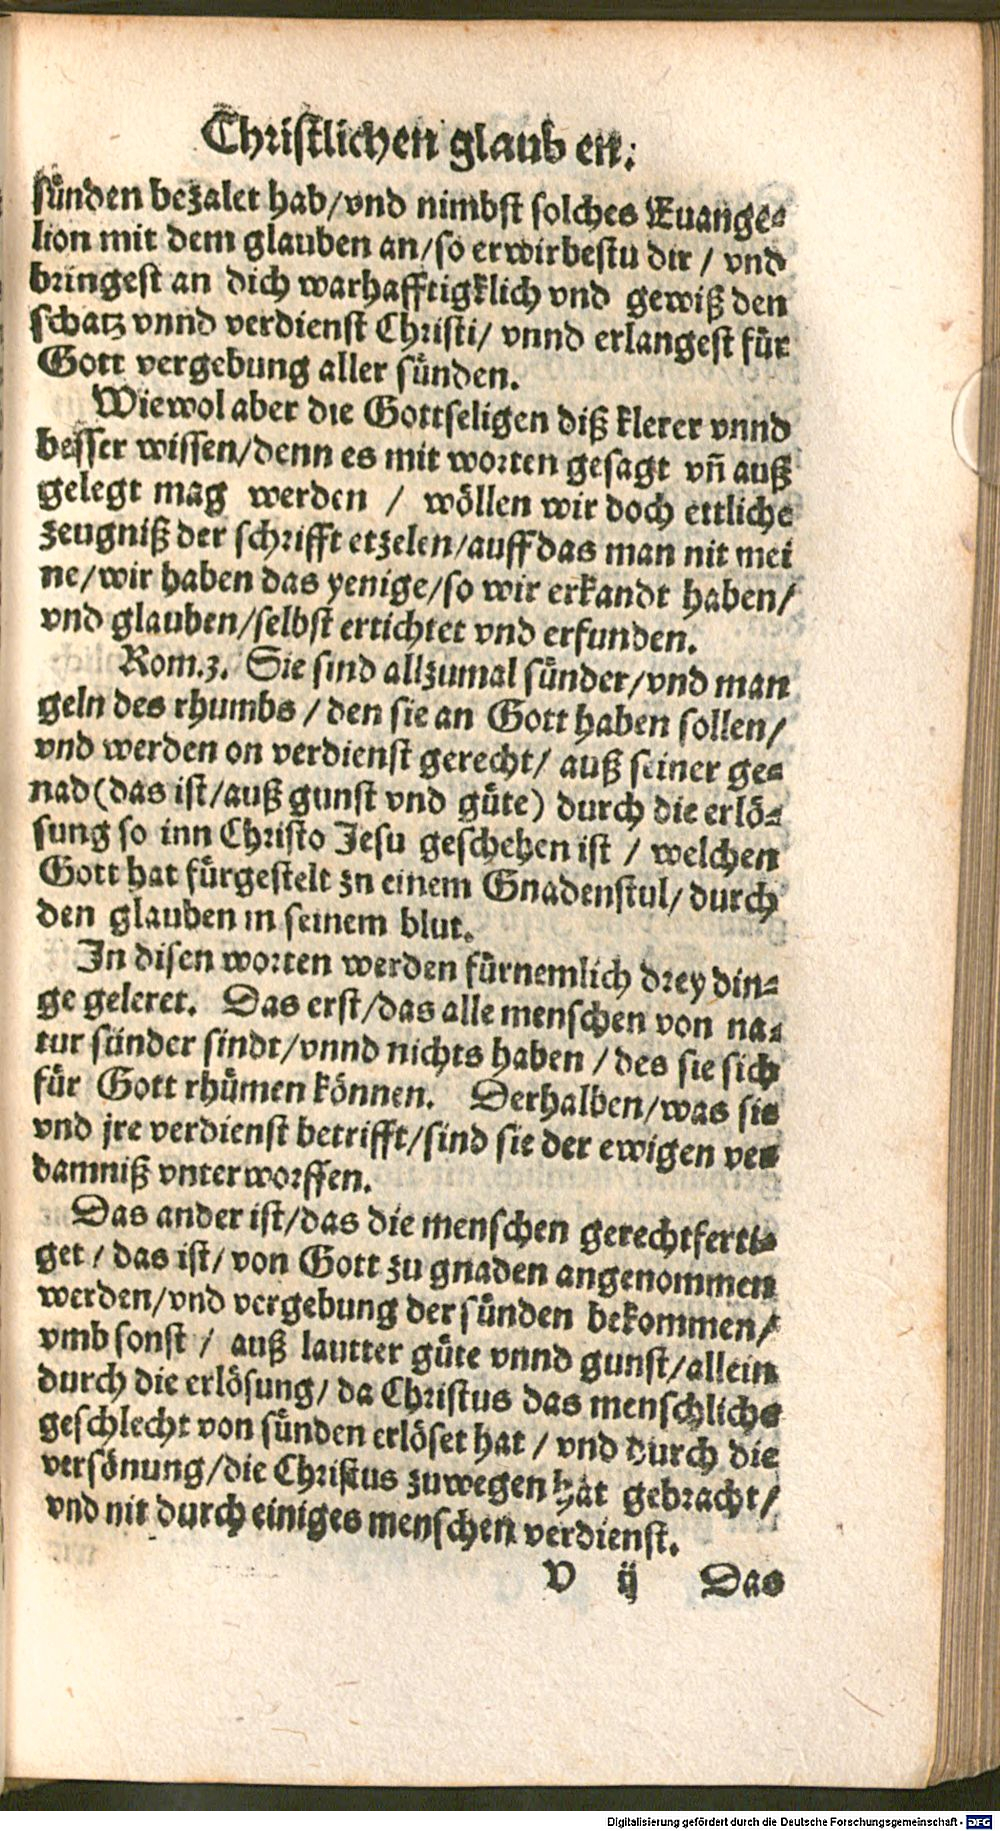 Christlichen glaub en:
sünden bezalet hab/vnd nimbst solches Euange-
lion mit dem glauben an/so erwirbestu dir / vnd
bringest an dich warhafftigklich vnd gewiß den
schatz vnnd verdienst Christi/ vnnd erlangest für
Gott vergebung aller sünden.
Wiewol aber die Gottseligen diß klerer vnnd
besser wissen/denn es mit worten gesagt vñ auß
gelegt mag werden / wöllen wir doch ettliche
zeugniß der schrifft etzelen/auff das man nit mei
ne/wir haben das yenige/so wir erkandt haben/
vnd glauben/selbst ertichtet vnd erfunden.
Rom.3. Sie sind allzumal sünder/vnd man
geln des rhumbs / den sie an Gott haben sollen/
vnd werden on verdienst gerecht/ auß seiner ge-
nad(das ist/auß gunst vnd güte) durch die erlö-
sung so inn Christo Jesu geschehen ist / welchen
Gott hat fürgestelt zn einem Gnadenstul/ durch
den glauben in seinem blut.
In disen worten werden fürnemlich drey din-
ge geleret. Das erst/das alle menschen von na-
tur sünder sindt/vnnd nichts haben / des sie sich
für Gott rhümen können. Derhalben/was sie
vnd jre verdienst betrifft/sind sie der ewigen ver
damniß vnterworffen.
Das ander ist/das die menschen gerechtferti-
get / das ist/ von Gott zu gnaden angenommen
werden/vnd vergebung der sünden bekommen/
vmb sonst / auß lautter güte vnnd gunst/allein
durch die erlösung/ da Christus das menschliche
geschlecht von sünden erlöset hat / vnd durch die
versönung/die Christus zuwegen hat gebracht/
vnd nit durch einiges menschen verdienst.
V ij Das
Digitalisierung gefördert durch die Deutsche Forschungsgemeinschaft - DFG